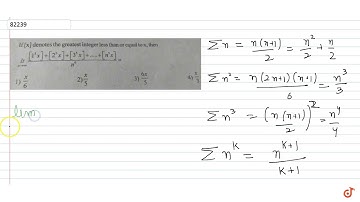 82239
If [x] denotes the greatest integer less than or equal to x, then
Lt n→∞ [1²x] + [2²x] + [3²x] + ..... + [n²x] / n³ =
1) x/6 2) x/3 3) 6x/5
lim
Σn = n(n+1)/2 = n²/2 + n/2
Σn² = n(2n+1)(n+1)/6 = n³/3
Σn³ = (n(n+1)/2)² = n⁴/4
Σn^k = n^(k+1)/(k+1)
doubtnut